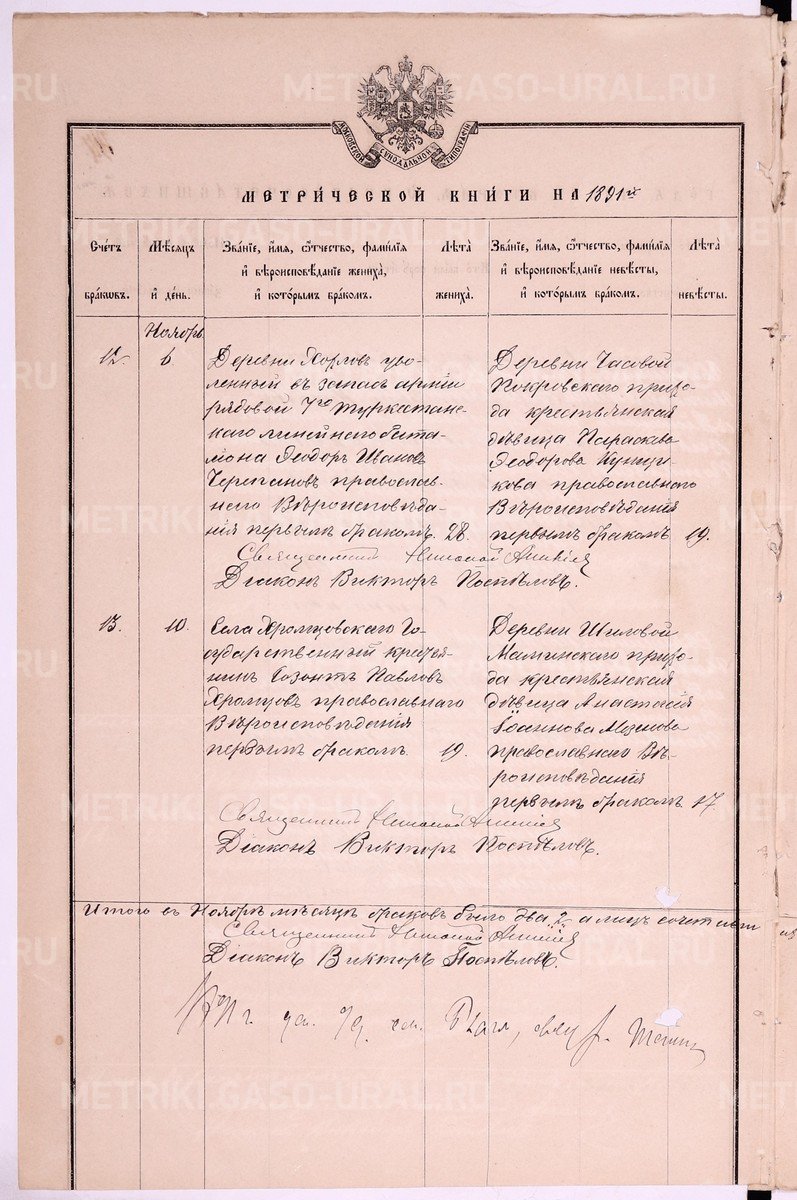 METRIKI.GASO-URAL.RU
МОСКОВСКОЙ СѴНОДАЛЬНОЙ ТИПОГРАФІИ
МЕТРИ́ЧЕСКОЙ КНИ́ГИ НА 1891й
Сче́тъ бра́кωвъ.
Мѣ́сяцъ и҆ де́нь.
Зва́нїе, и҆́мя, ѻ҆́тчество, фами́лїя
и҆ вѣроисповѣ́данїе жениха̀,
и҆ кото́рымъ бра́комъ.
Лѣта̀
жениха̀.
Зва́нїе, и҆́мя, ѻ҆́тчество, фами́лїя
и҆ вѣроисповѣ́данїе невѣ́сты,
и҆ кото́рымъ бра́комъ.
Лѣта̀
невѣ́сты.
Ноябрь
12
6
Деревни Хорловъ уво-
ленный въ запасъ арміи
рядовой 7го Туркестанс-
каго линейнаго бата-
ліона Ѳеодоръ Ивановъ
Черепановъ православ-
наго Вѣроисповѣда-
нія первымъ бракомъ.
28.
Деревни Часовой
Покровскаго прихо-
да крестьянская
дѣвица Параскева
Ѳеодорова Кунщи-
кова православнаго
Вѣроисповѣданія
первымъ бракомъ
19.
Священникъ Николай
Діаконъ Викторъ Поспѣловъ.
13.
10.
Села Хромцовскаго Го-
сударственный крестья-
нинъ Созонтъ Павловъ
Хромцовъ православнаго
Вѣроисповѣданія
первымъ бракомъ.
19.
Деревни Шиловой
Маминскаго прихо-
да крестьянская
дѣвица Анастасія
Іоаннова
православнаго Вѣ-
роисповѣданія
первымъ бракомъ
17
Священникъ Николай
Діаконъ Викторъ Поспѣловъ.
Итого въ Ноябрѣ мѣсяцѣ браковъ было два 2 а лицъ
Священникъ Николай
Діаконъ Викторъ Поспѣловъ.